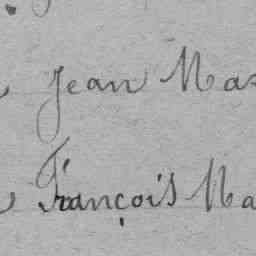 Jean Mas
François Ma